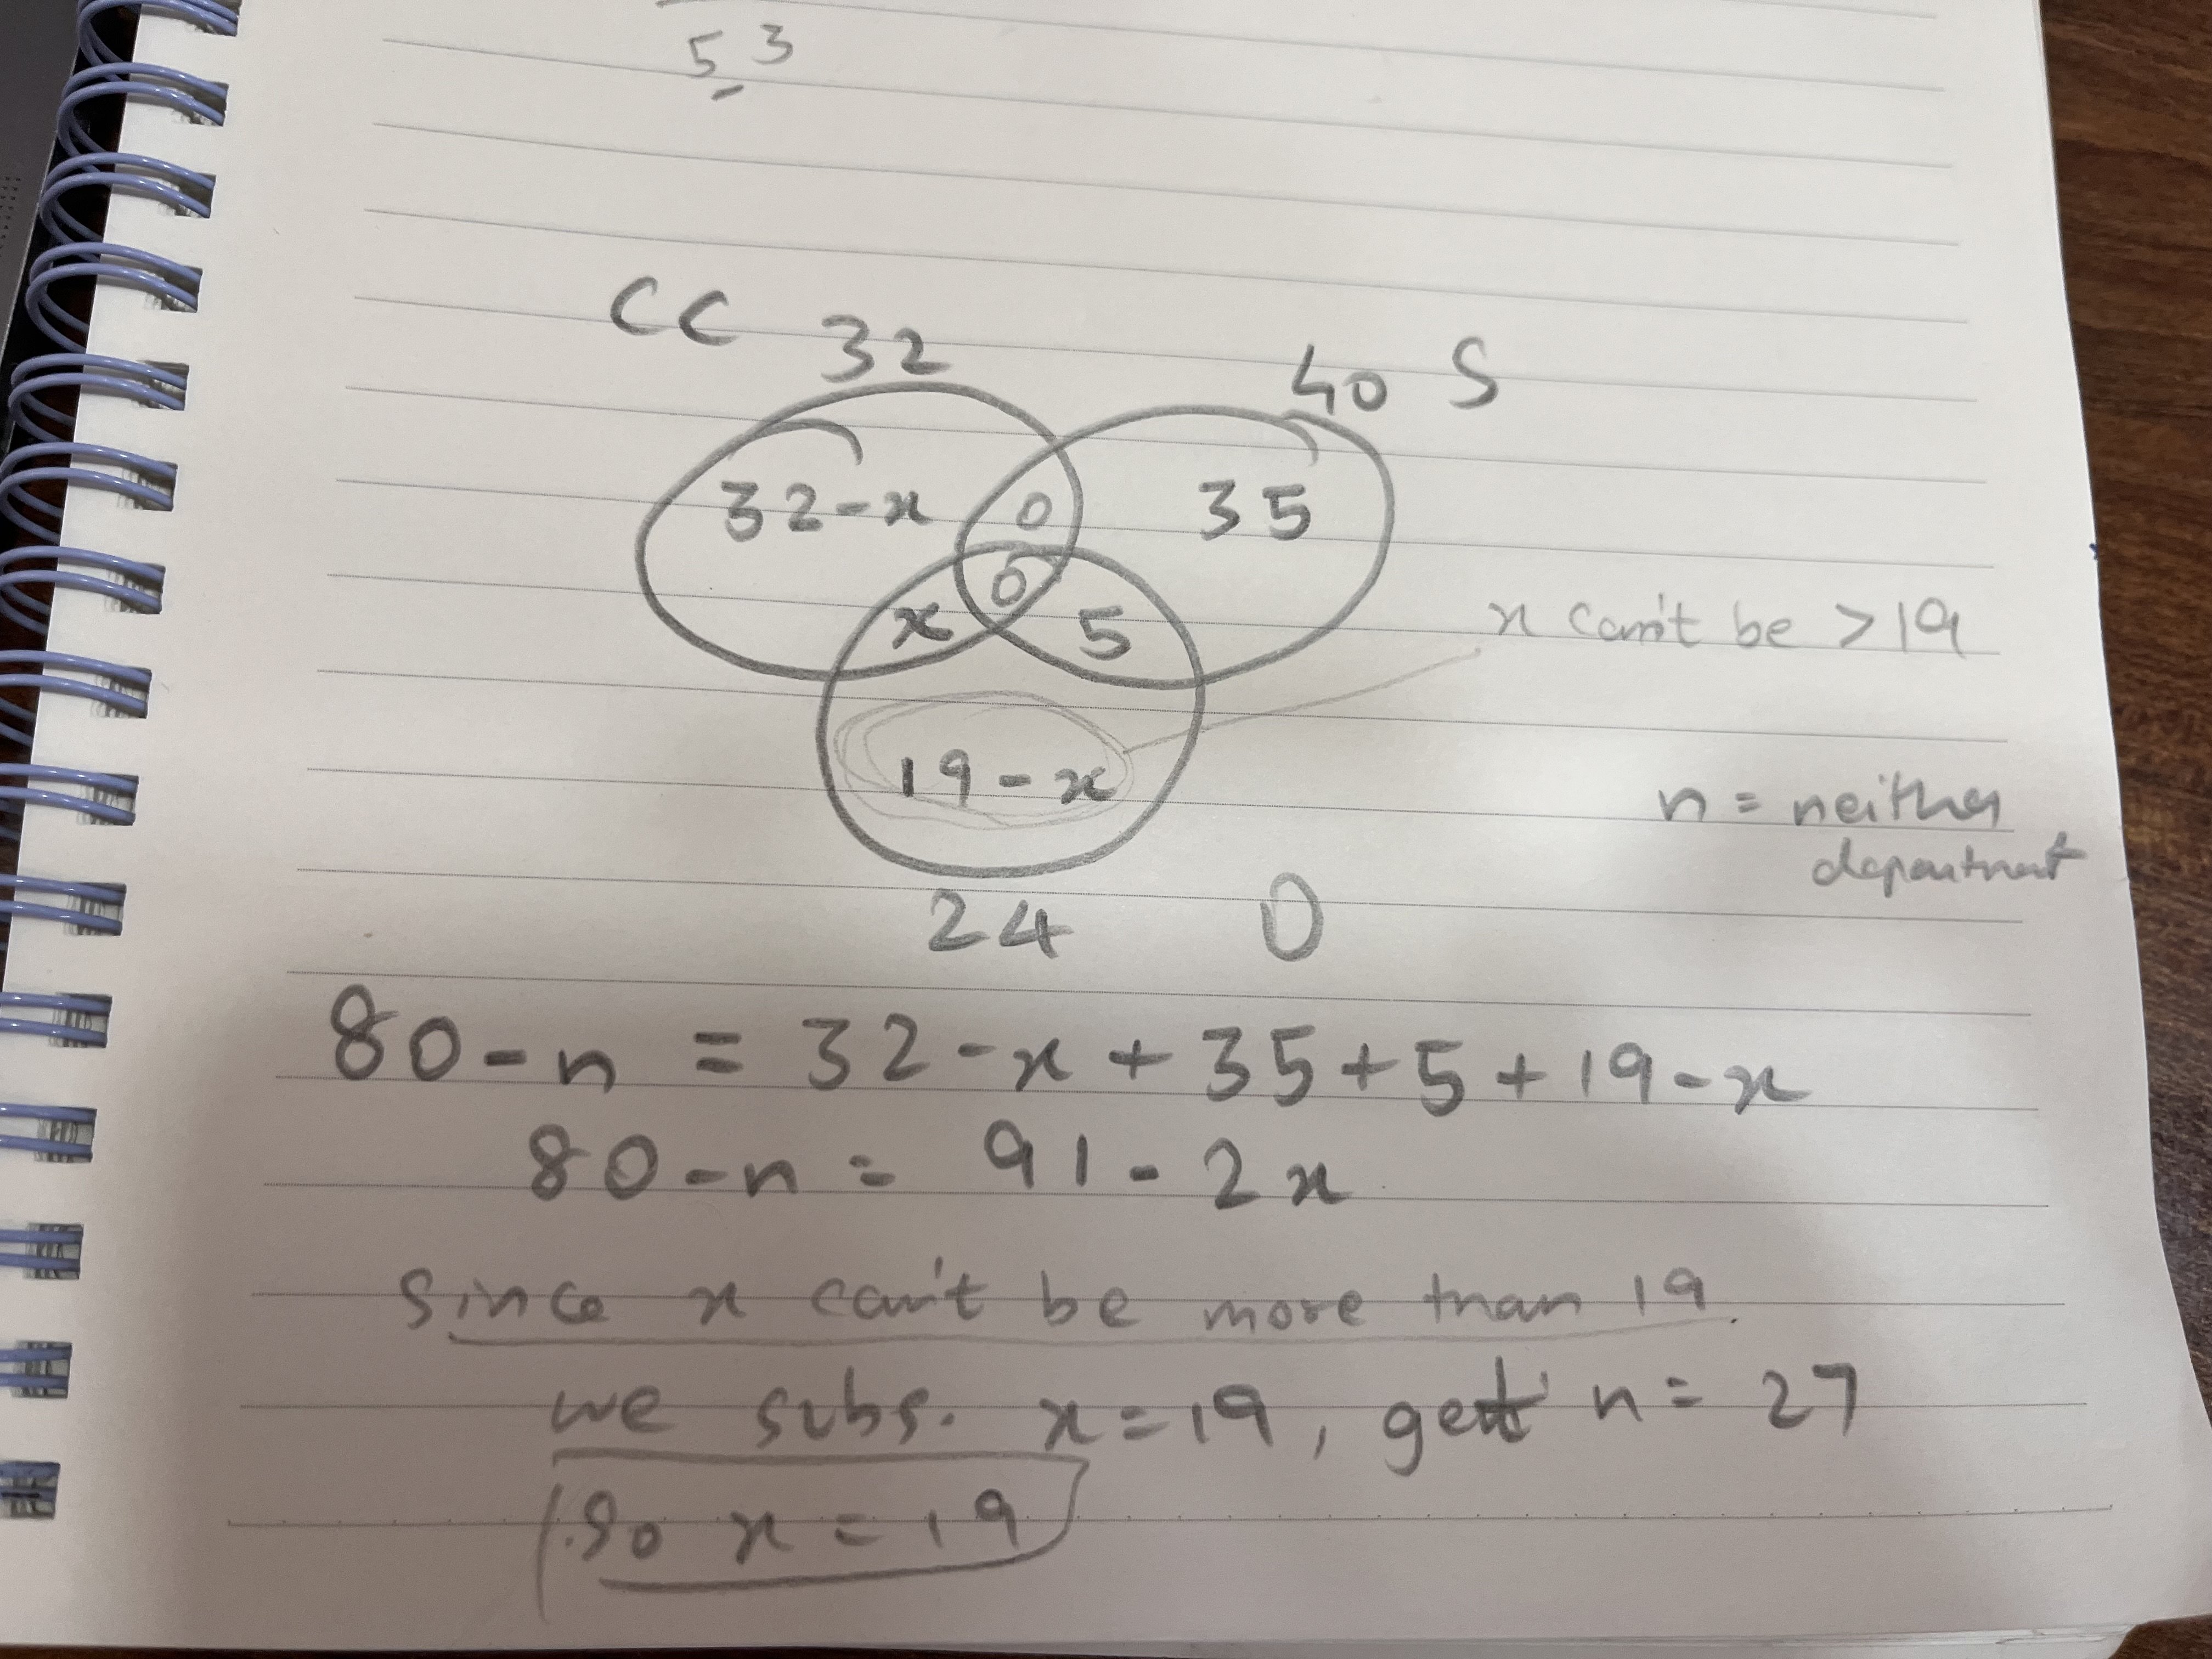 53
CC 32
40 S
32-x 0 35
0
x 5
x can't be > 19
19-x
n = neither
department
24 O
80-n = 32-x+35+5+19-x
80-n = 91-2x
Since x can't be more than 19.
we subs. x=19, get n= 27
So x = 19